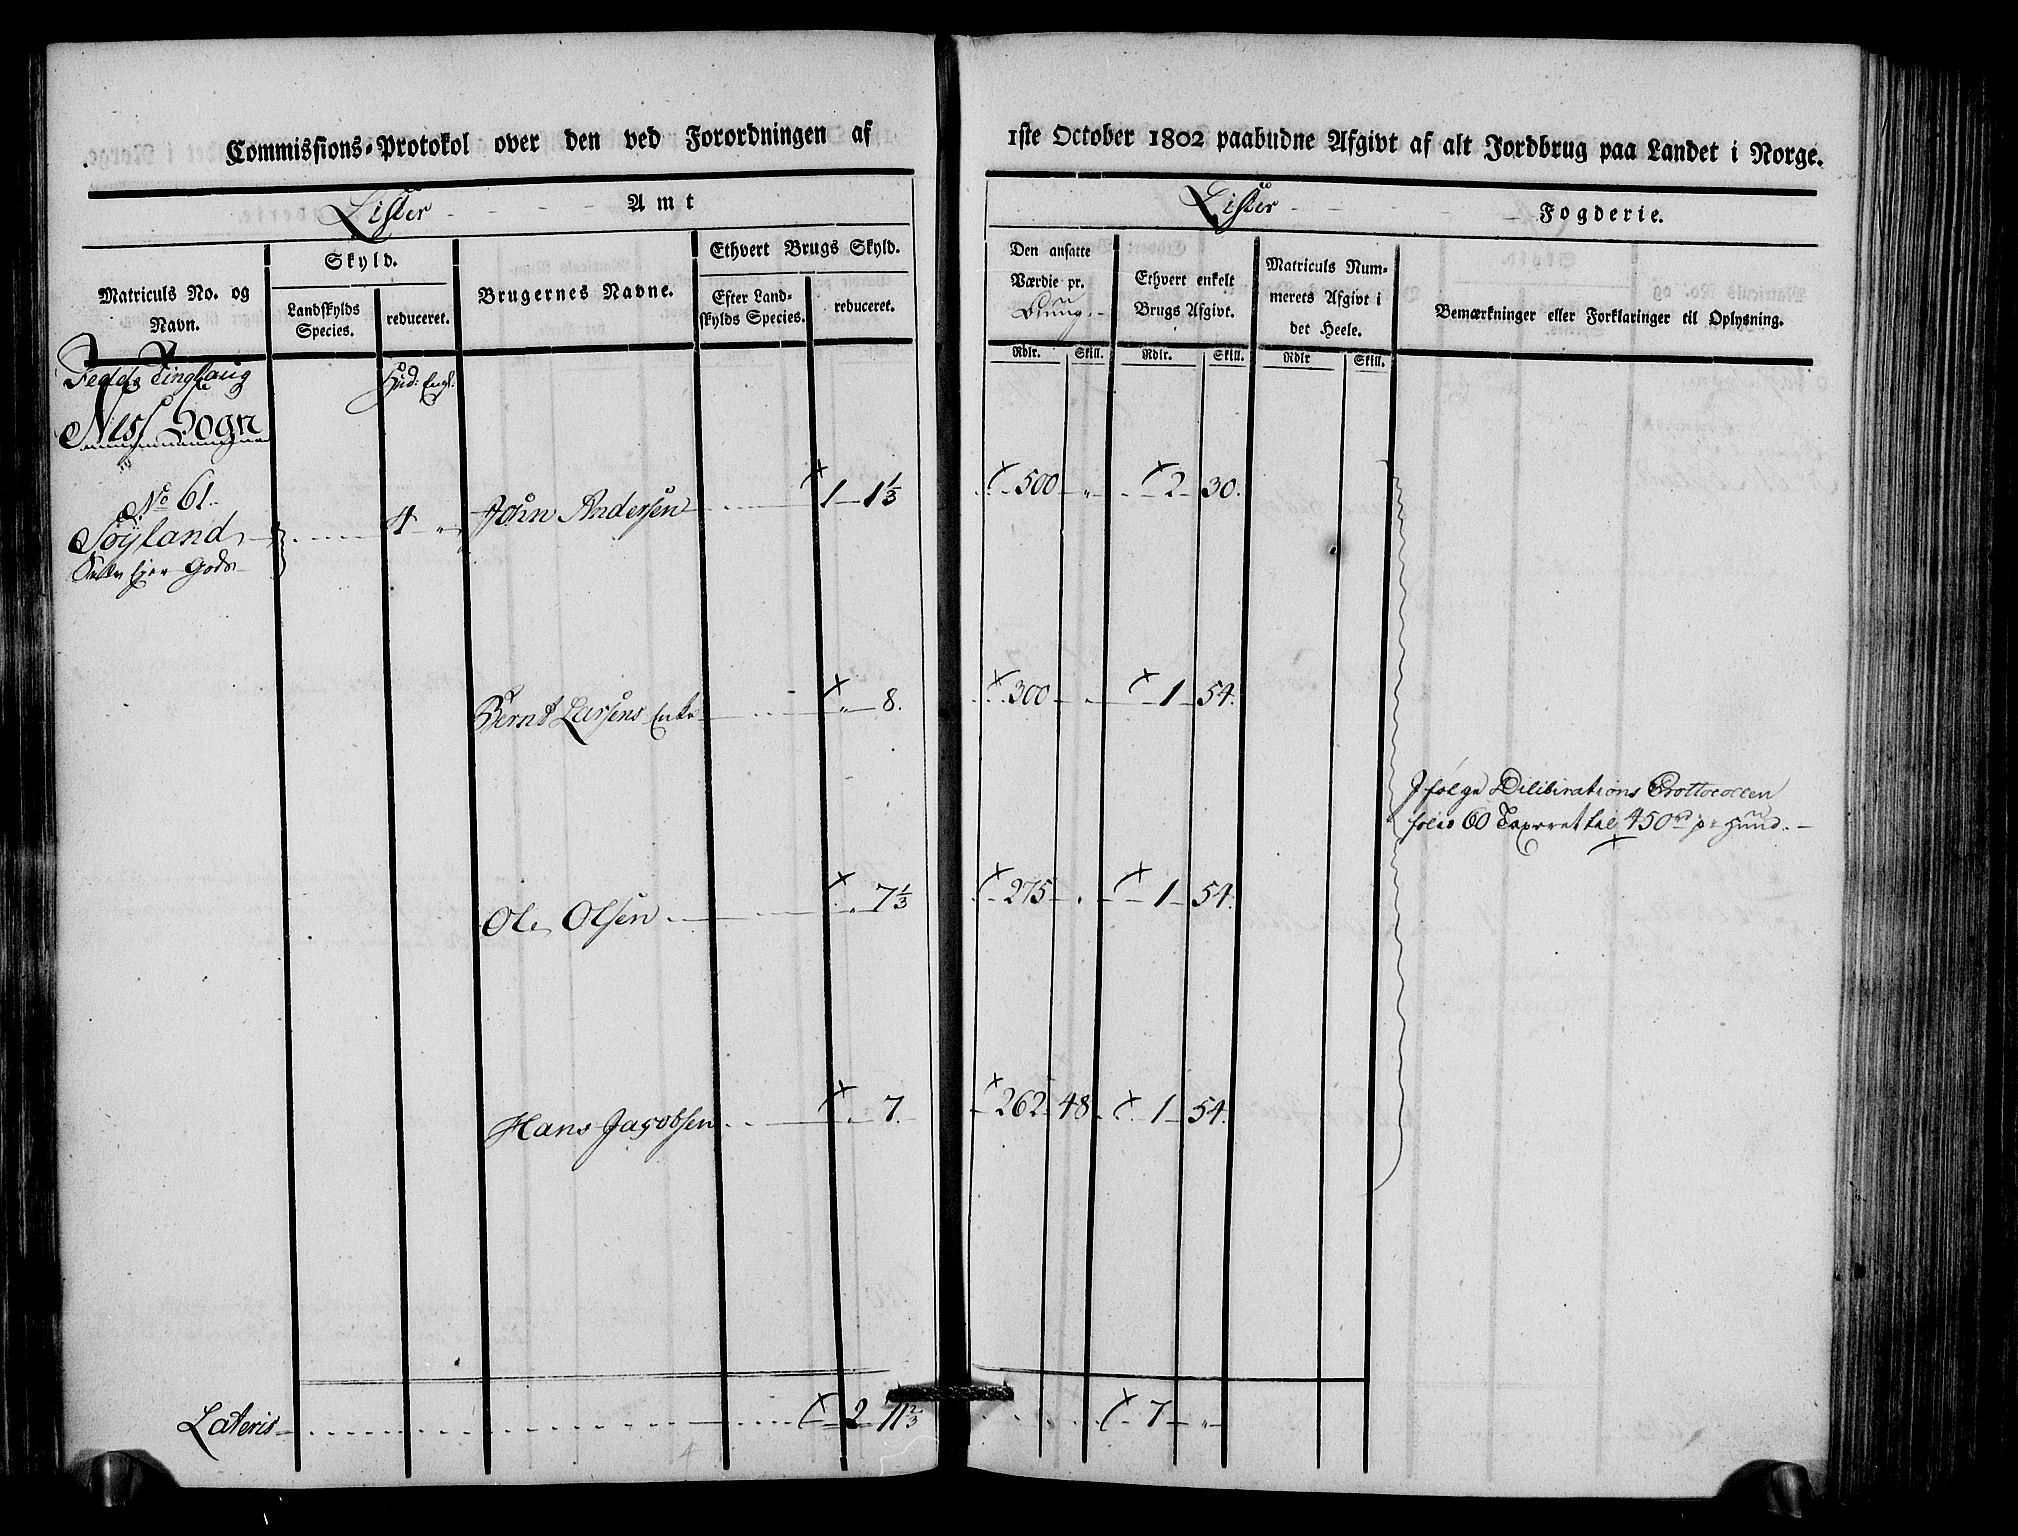 Commissions-Protokol over den ved Forordningen af
1ste October 1802 paabudne Afgivt af alt Jordbrug paa Landet i Norge.
Lister Amt
Lister Fogderie.
Matriculs No. og Navn.
Skyld.
Landskylds Species.
reduceret.
Brugernes Navne.
Ethvert Brugs Skyld.
Efter Landskylds Species.
reduceret.
Den ansatte Værdie pr. Brug.
Ethvert enkelt Brugs Afgivt.
Matriculs Nummerets Afgivt i det Heele.
Bemærkninger eller Forklaringer til Oplysning.
Rdlr. Skill. Rdlr. Skill. Rdlr Skill.
Fedde Tinglaug Hud: Engl:
Ness Sogn
No 61.
Söyland 4 " John Andersen 1 - 1 1/3 500 " 2 30.
Selv Ejer Gods
Bernt Larsens Enke " 8. 300 - 1 54.
Ifölge Dilibirations Prottocollen
folio 60 Taxeret til 450 rd pr Hund.
Ole Olsen " 7 1/3 275 - 1 54.
Hans Jacobsen " 7. 262 48 1 54.
Lateris 2 11 2/3 7 "